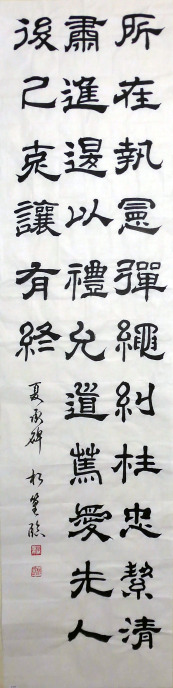 所在執憲彈繩糾枉忠絜清
肅進退以禮允道篤愛先人
後己克讓有終
夏承碑 松篁臨